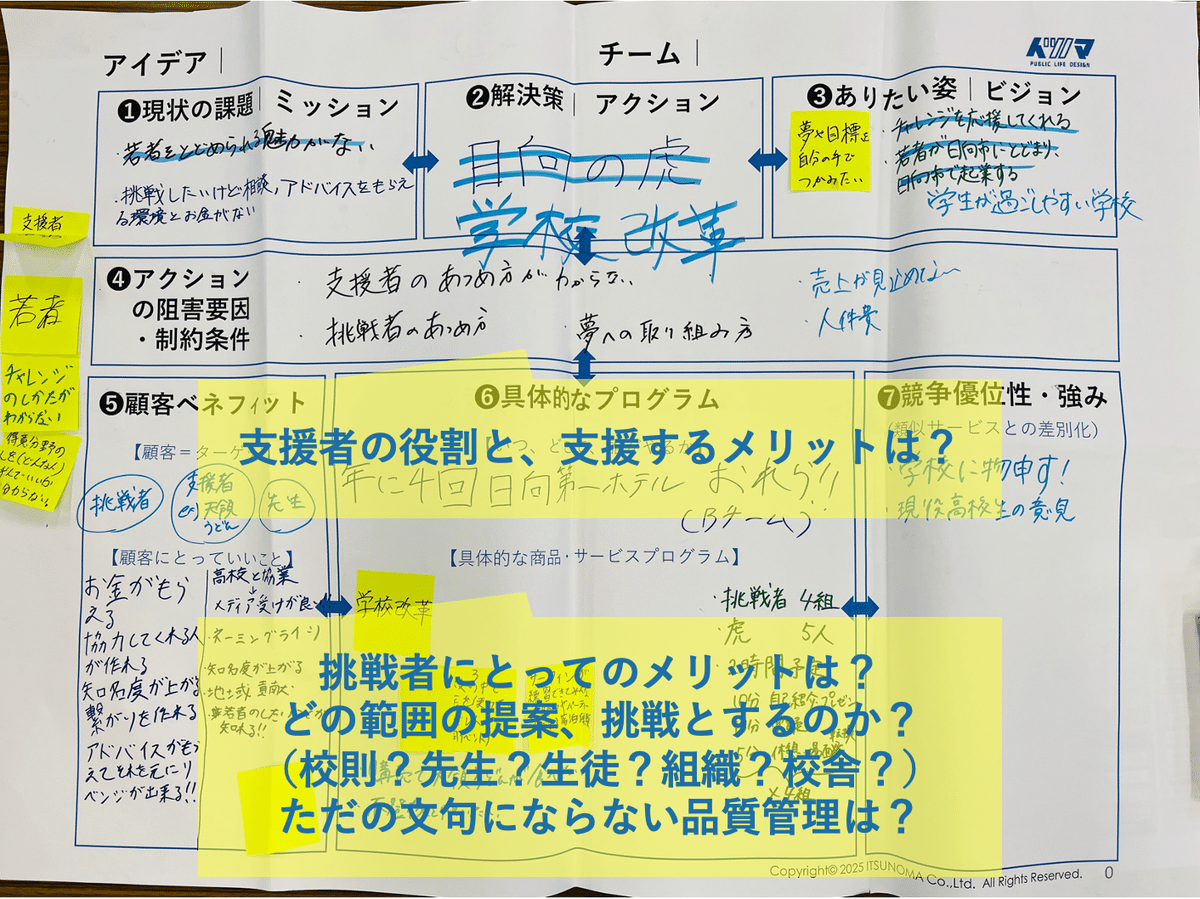 アイデア
チーム
ITSUNOMA
PUBLIC LIFE DESIGN
❶現状の課題 ミッション
・若者をとどめられる魅力がない
・挑戦したいけど相談,アドバイスをもらえ
る環境とお金がない
❷解決策 アクション
日向の虎
学校改革
❸ありたい姿 ビジョン
夢や目標を
自分の手で
つかみたい
・チャレンジを応援してくれる
・若者が日向市にとどまり、
日向市で起業する
学生が過ごしやすい学校
支援者
若者
チャレンジ
のしかたが
わからない
得意分野の
分からない。
❹アクション
の阻害要因
・制約条件
・支援者のあつめ方がわからない
・挑戦者のあつめ方
・夢への取り組み方
・売上が見込めない
・人件費
❺顧客ベネフィット
【顧客=ターゲ
挑戦者
支援者
ex)天領
うどん
先生
【顧客にとっていいこと】
お金がもら
える
協力してくれる人
が作れる
知名度が上がる
繋がりを作れる
アドバイスがもら
えてそれを元にリ
ベンジが出来る!!
高校と協業
↓
メディア受けが良い!!
・ネーミングライツ
・知名度が上がる
・地域貢献
・若者のしたい
知れる!!
❻具体的なプログラム
年に4回日向第一ホテル おれら!!
(Bチーム)
【具体的な商品・サービスプログラム】
学校改革
・挑戦者 4組
・虎 5人
・2時間予定
10分 自己紹介・プレゼン
×4組
❼競争優位性・強み
(類似サービスとの差別化)
・学校に物申す!
・現役高校生の意見
支援者の役割と、支援するメリットは?
挑戦者にとってのメリットは?
どの範囲の提案、挑戦とするのか?
(校則?先生?生徒?組織?校舎?)
ただの文句にならない品質管理は?
Copyright© 2025 ITSUNOMA Co.,Ltd. All Rights Reserved. 0